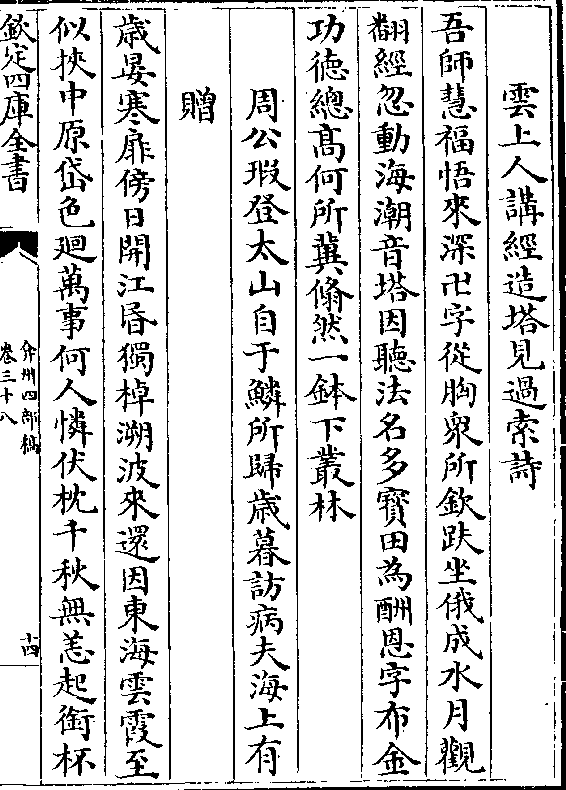 雲上人講經造塔見過索詩
吾師慧福悟來深卍字從胸衆所欽趺坐俄成水月觀
翻經忽動海潮音塔因聽法名多寳田為酬恩字布金
功徳總髙何所冀翛然一鉢下叢林
周公瑕登太山自于鱗所歸歳暮訪病夫海上有
贈
歳晏寒扉傍日開江昏獨棹溯波來還因東海雲霞至
似挾中原岱色廻萬事何人憐伏枕千秋無恙起銜杯
欽定四庫全書
弇州四部稿
卷三十八
十四